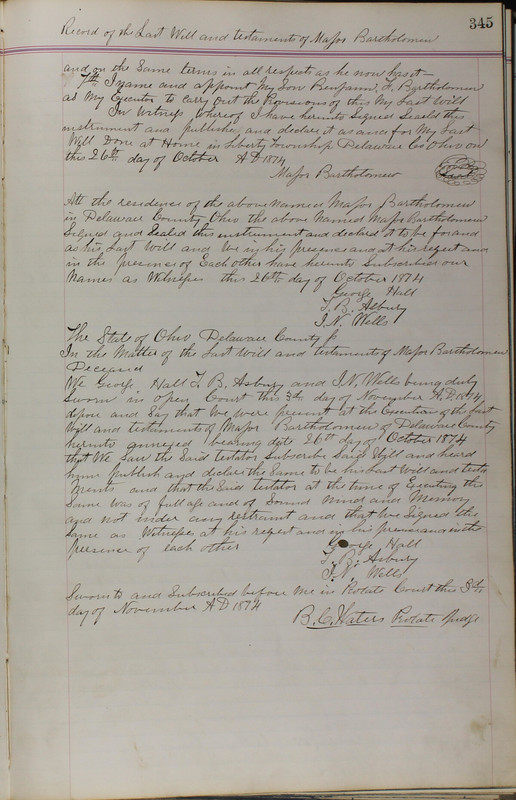 345
Record of the Last Will and testaments of Major Bartholomew
and on the Same terms in all respects as he now has it—
7th I name and appoint My Son Benjamin F. Bartholomew
as My Executor to carry out the Provisions of this My Last Will
In Witness Whereof I have hereunto Signed Sealed this
instrument and publish and declare it as and for My Last
Will Done at Home in Liberty township Delaware Co Ohio on
this 26th day of October AD 1874
Major Bartholomew
Seal
At the residence of the above Named Major Bartholomew
in Delaware County Ohio the above Named Major Bartholomew
Signed and Sealed this instrument and declared it to be for and
as his Last Will and We in his presence and at his request and
in the presence of Each other have hereunto Subscribed our
Names as Witnesses this 26th day of October 1874
George Hall
T. B. Asbury
I. N. Wells
The State of Ohio Delaware County ss
In the Matter of the Last Will and testaments of Major Bartholomew
Deceased
We George Hall T. B. Asbury and I. N. Wells being duly
Sworn in open Court this 3d day of November AD 1874
depose and Say that We were present at the Execution of the last
Will and testaments of Major Bartholomew of Delaware County
hereunto annexed bearing date 26th day of October 1874
that We Saw the Said testator Subscribe Said Will and heard
him publish and declare the Same to be his Last Will and testa
ments and that the Said testator at the time of Executing the
Same was of full age and of Sound Mind and Memory
and not under any restraint and that We Signed the
Same as Witnesses at his request and in his presence and in the
presence of each other
George Hall
T. B. Asbury
I. N. Wells
Sworn to and Subscribed before Me in Probate Court this 3d
day of November AD 1874
B. C. Waters Probate Judge